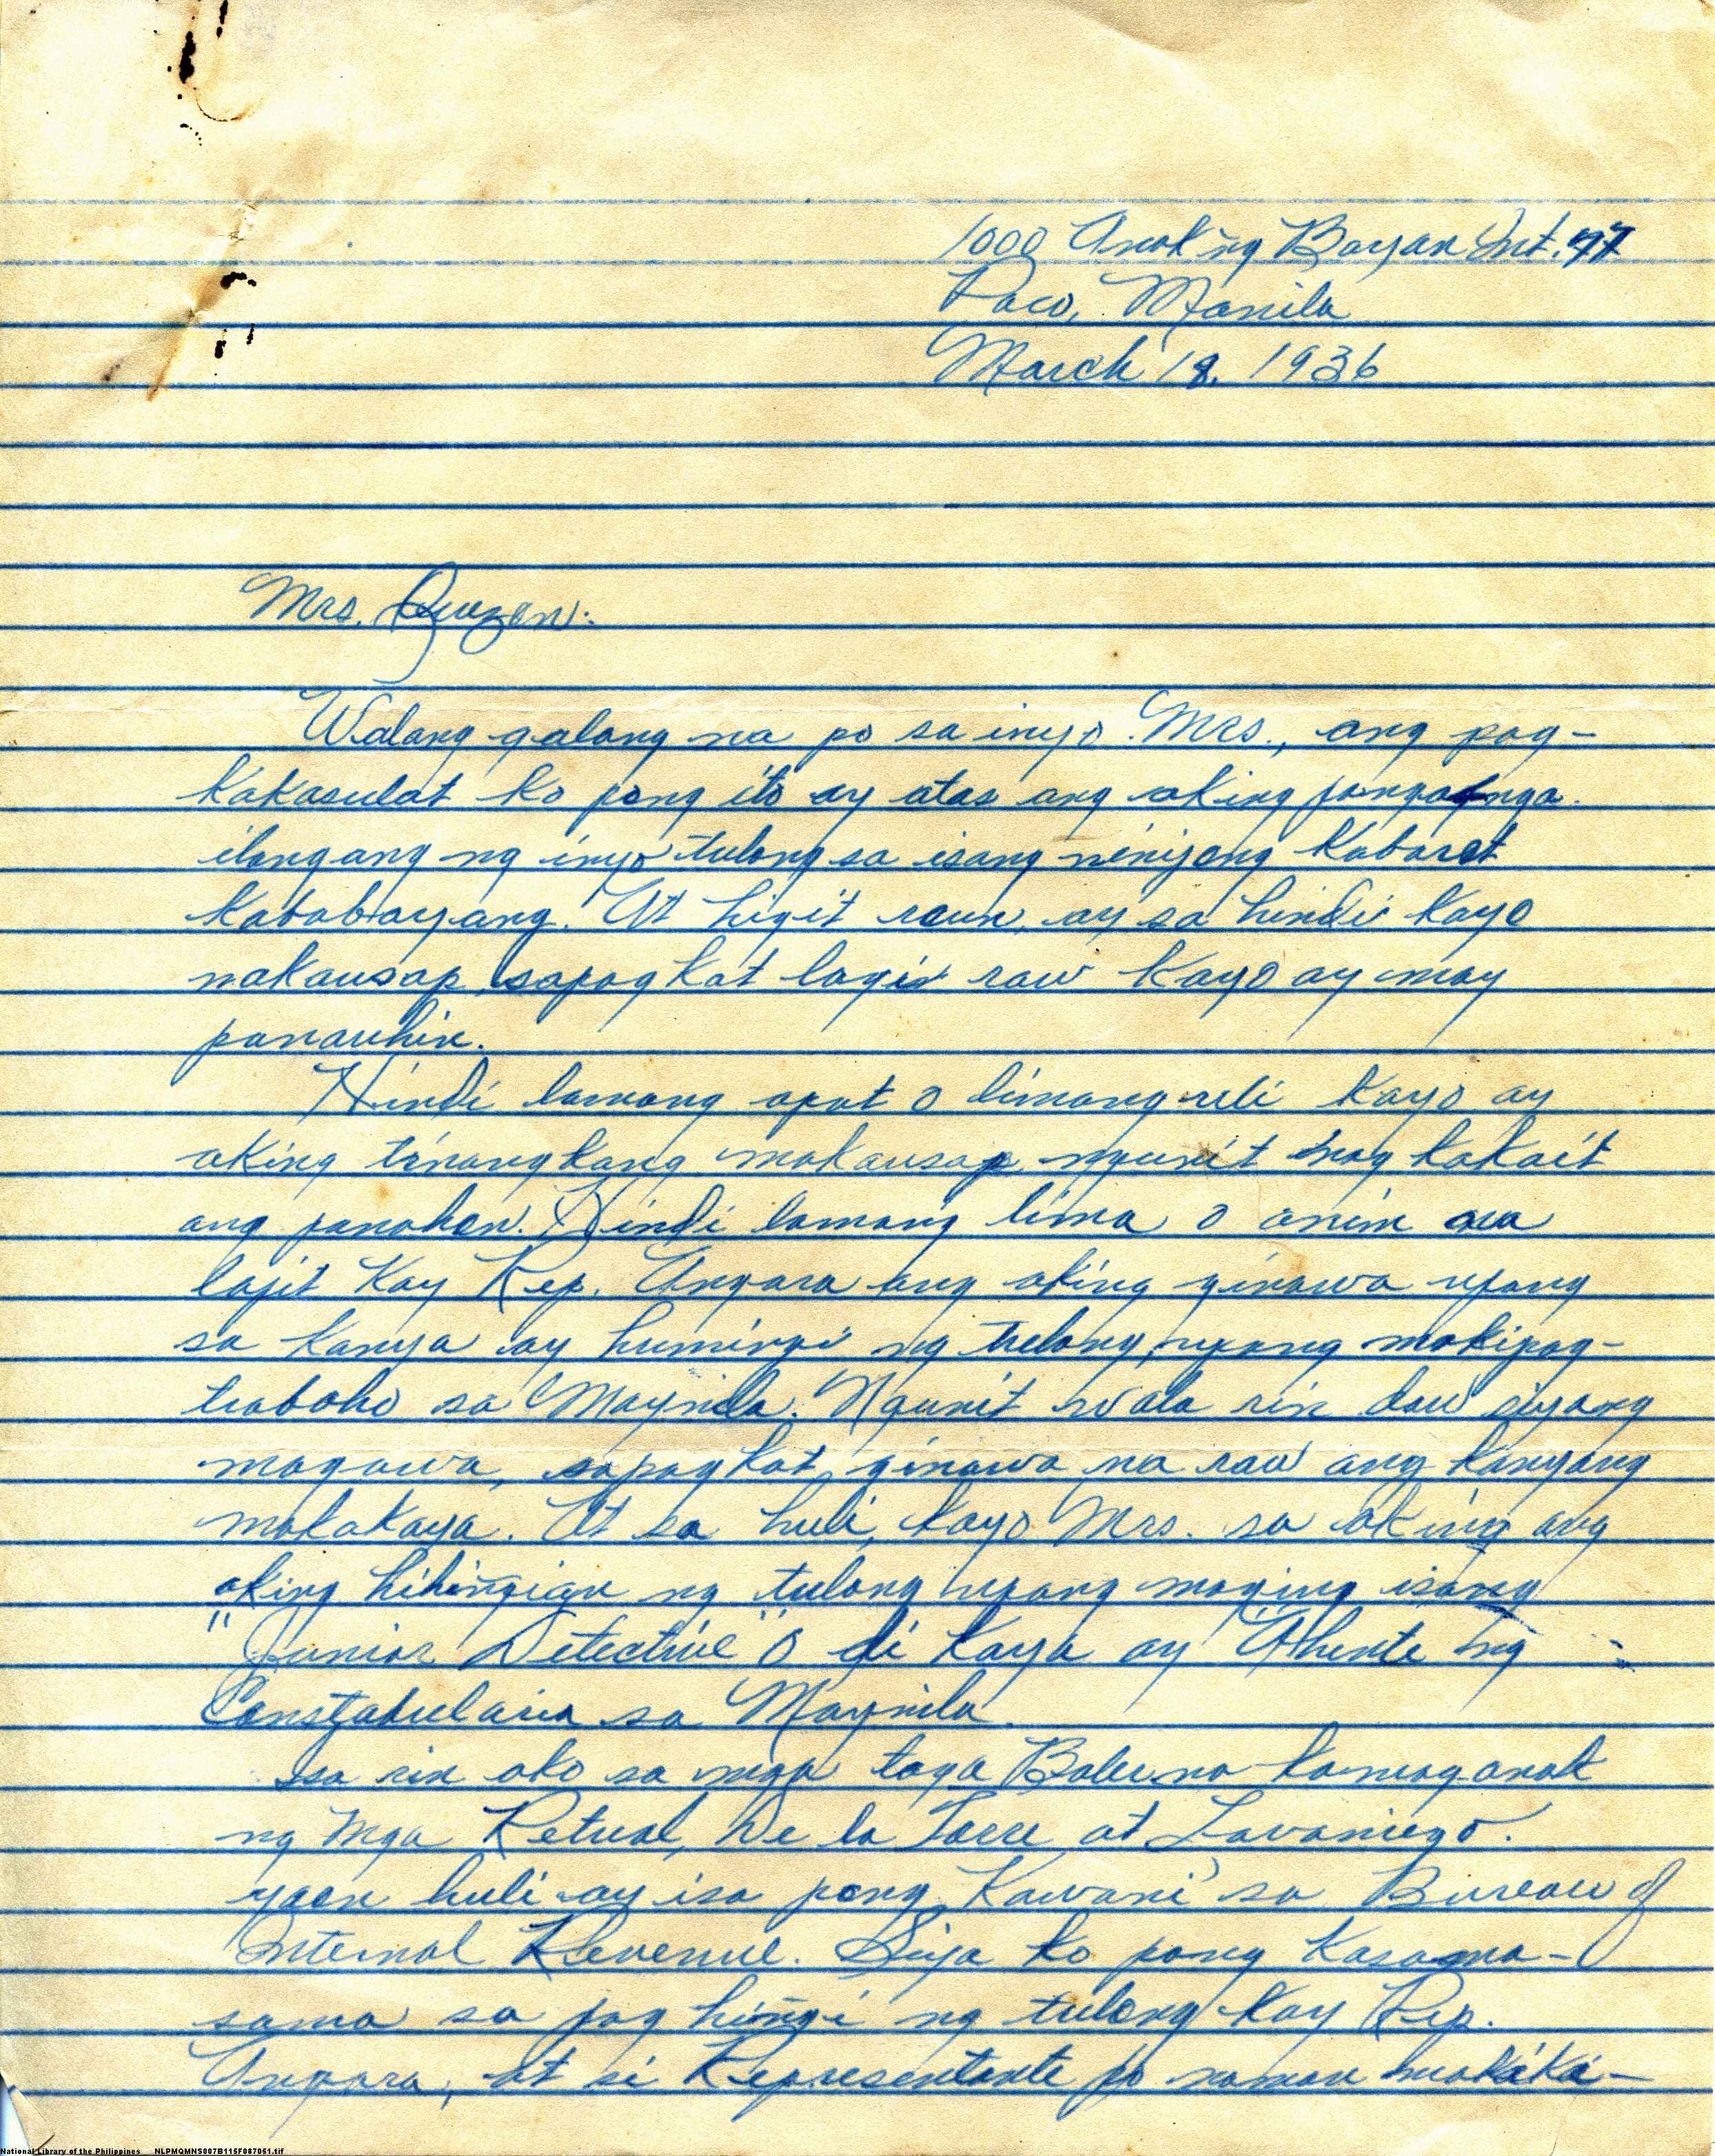 1000 Anak ng Bayan Int. 97
Paco, Manila
March 18, 1936
Mrs. Quezon:
Walang galang na po sa inyo Mrs., ang pag-
kakasulat ko pong ito ay atas ang aking
ilangang ng inyo tulong sa isang ninyong
kababayang. At higit raun, ay sa hindi kayo
nakausap, sapagkat lagi raw kayo ay may
panauhin.
Hindi lamang apat o limang uli kayo ay
aking tinangkang makausap, ngunit nag kakait
ang panahon. Hindi lamang lima o anim na
lapit kay Rep. Angara ang aking ginawa upang
sa kanya ay humingi ng tulong, upang makipag-
trabaho sa Maynila. Ngunit wala rin daw siyang
magawa, sapagkat ginawa na raw ang kanyang
makakaya. At sa huli, kayo Mrs. sa aking ang
aking hihingian ng tulong upang maging isang
"Junior Detective" o di kaya ay Ahente ng
Constabularia sa Maynila.
Isa rin ako sa mga taga Baler na kamag-anak
ng mga Retual, De la Torre at Lavaniego.
yaon huli ay isa pong kawani sa Bureau of
Internal Revenue. Siya ko pong kasama-
sama sa pag hingi ng tulong kay Rep.
Angara, at si Representante po naman makaka-
National Library of the Philippines NLPMQMNS007B115F087051.tif